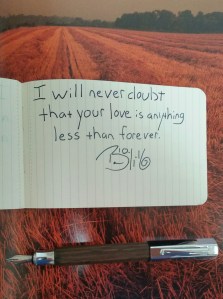 I will never doubt
that your love is anything
less than forever.